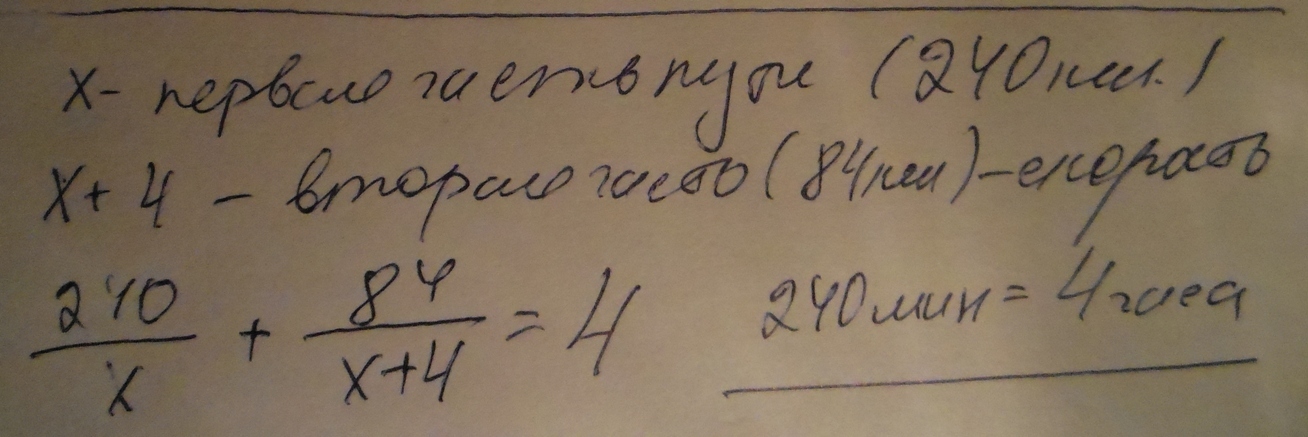 x - первая часть пути (240 км.)
x + 4 - вторая часть (84 км) - скорость
240/x + 84/(x+4) = 4 240 мин = 4 часа